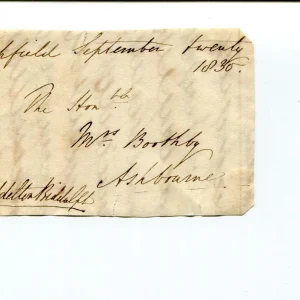 hfield September twenty
1836.
The Honble
Mrs Boothby
Ashbourne
ddelton Biddulph